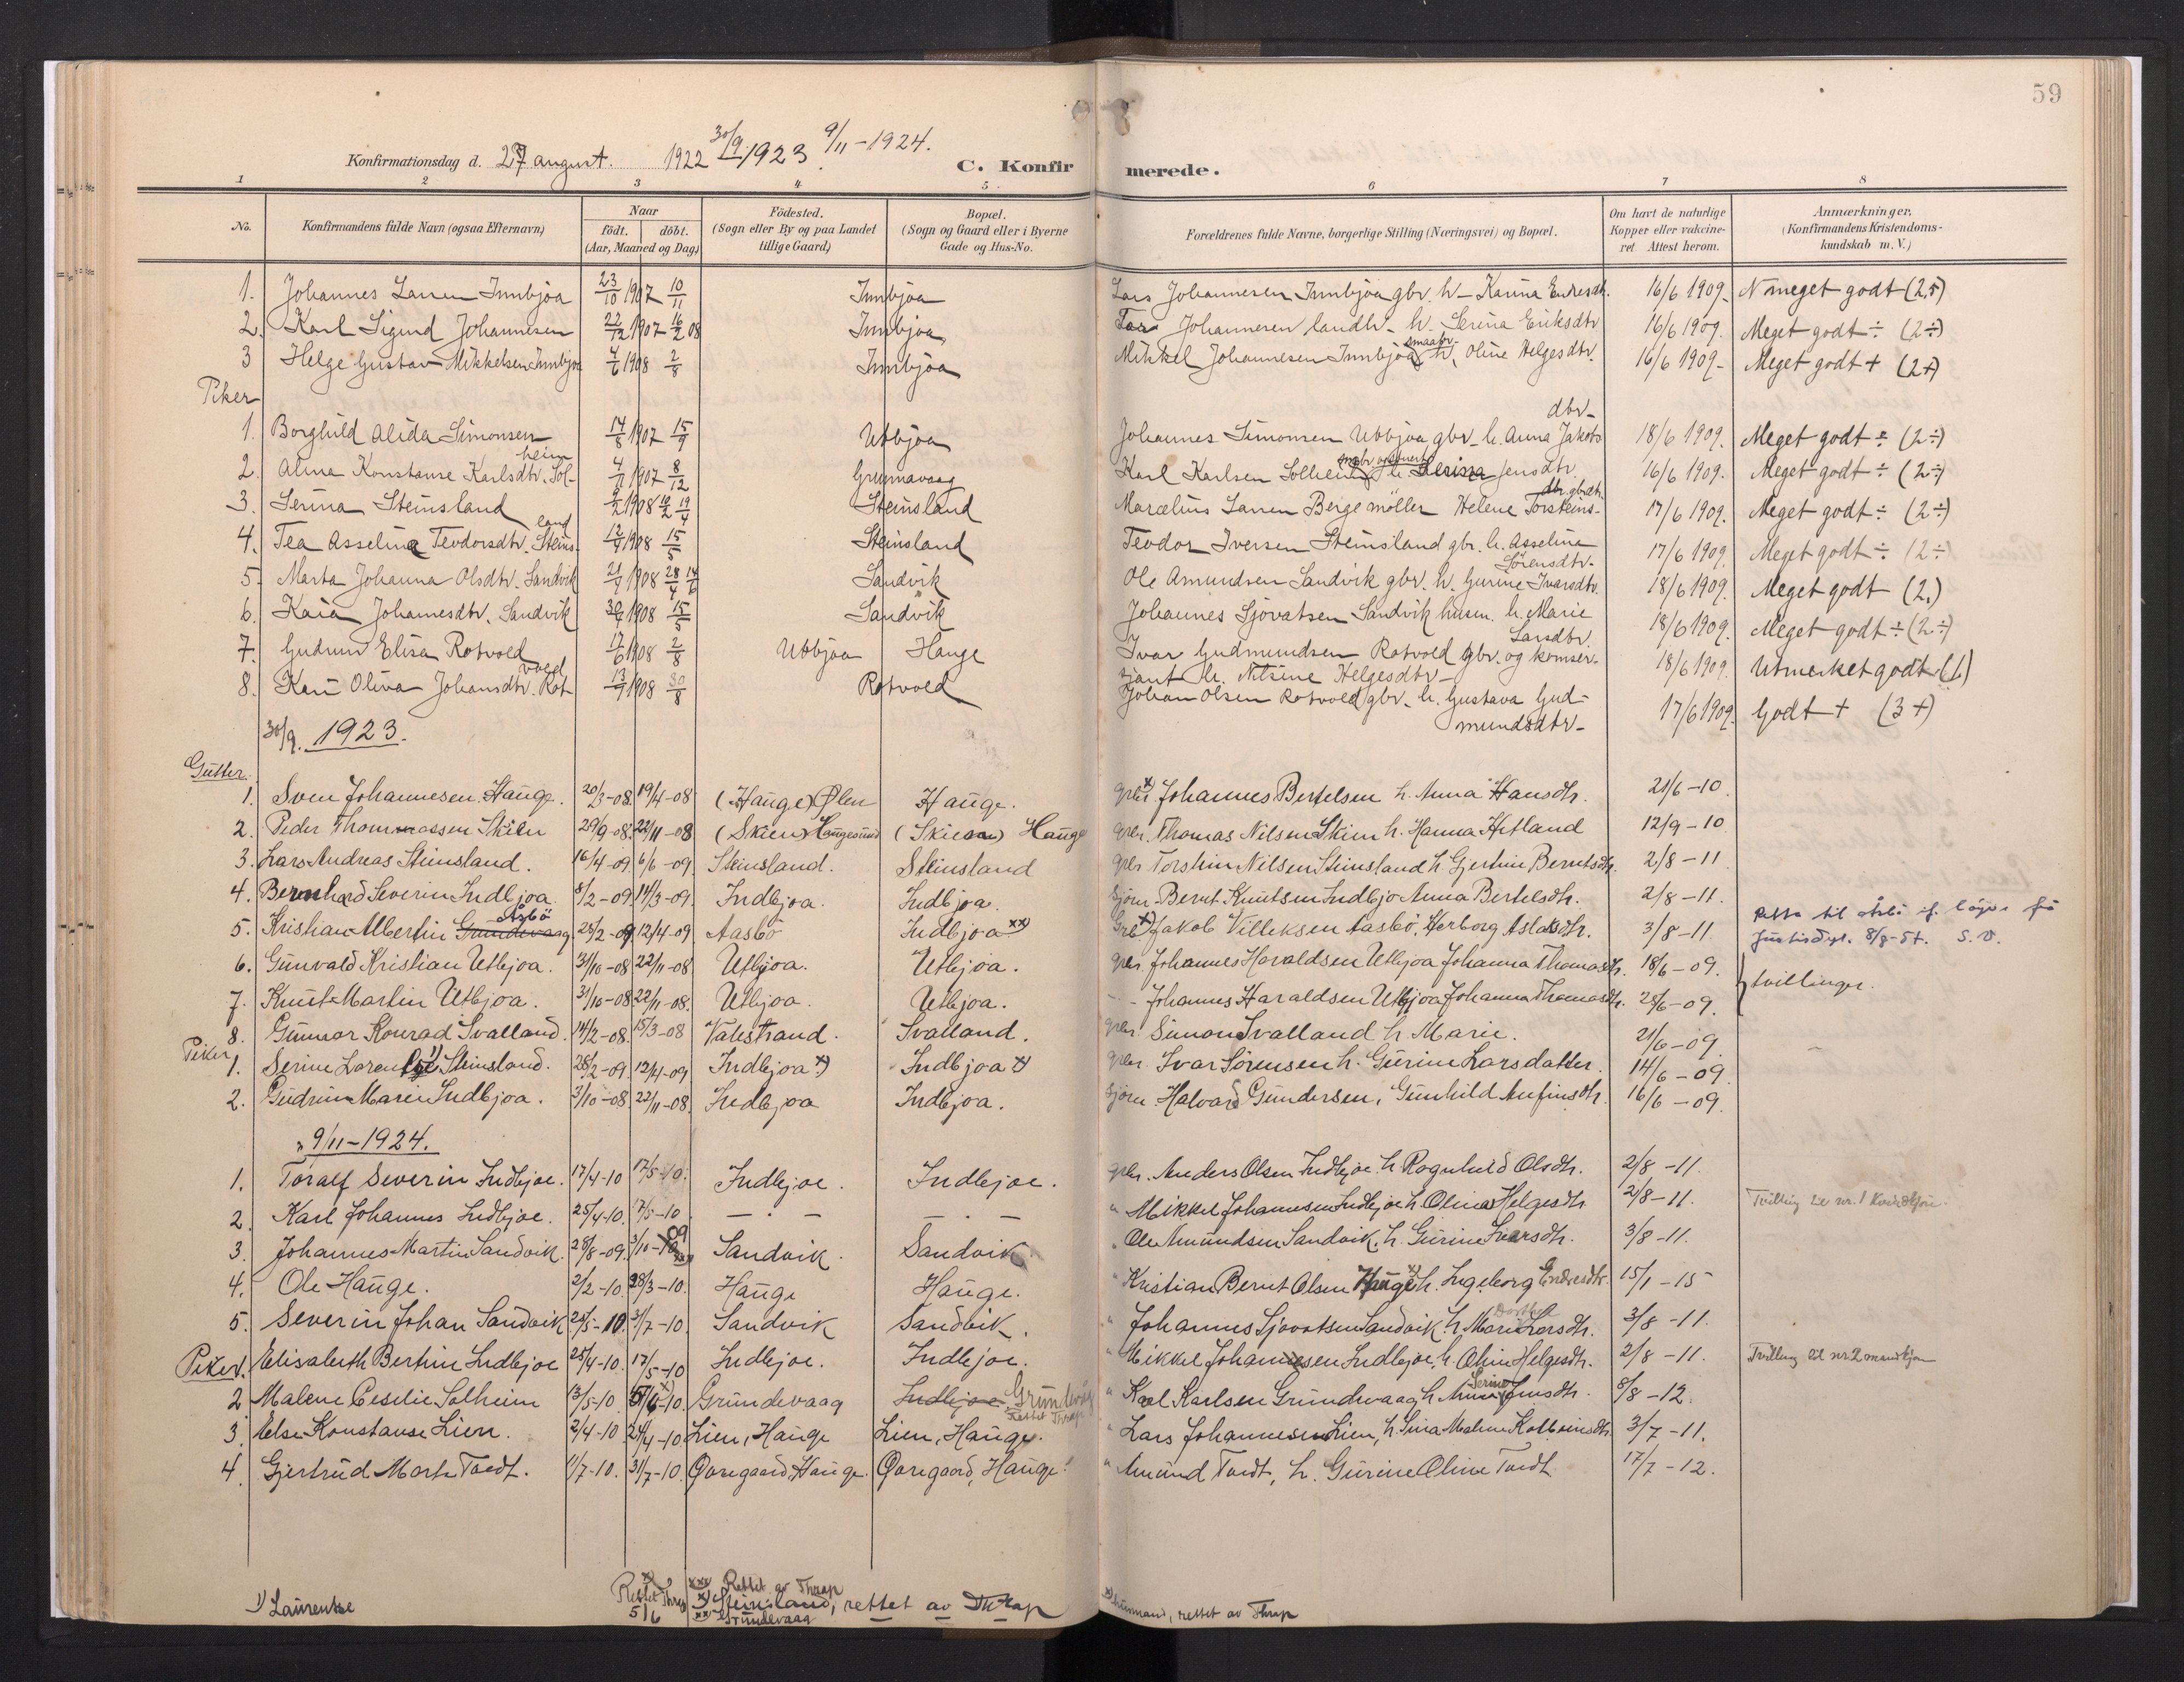 59
Konfirmationsdag d. 27 august. 1922 30/9 1923 9/11-1924.
C. Konfirmerede.
1 2 3 4 5 6 7 8
No. Konfirmandens fulde Navn (ogsaa Efternavn) Naar født. døbt. (Aar, Maaned og Dag) Födested. (Sogn eller By og paa Landet tillige Gaard) Bopæl. (Sogn og Gaard eller i Byerne Gade og Hus-No.) Forældrenes fulde Navne, borgerlige Stilling (Næringsvei) og Bopæl. Om havt de naturlige Kopper eller vakcineret. Attest herom. Anmærkninger. (Konfirmandens Kristendomskundskab m. V.)
1. Johannes Larsen Innbjoa 23/10 1907 10/11 Innbjoa Lars Johannesen Innbjoa gbr. h - Karina Endresdt. 16/6 1909. N meget godt (2,5)
2. Karl Sigurd Johannesen 22/12 1907 16/2 08 Innbjoa Johannesen landh. h. Serina Eriksdtr 16/6 1909. Meget godt ÷ (2÷)
3 Helge Gustav Mikkelsen Innbjoa 4/6 1908 2/8 Innbjoa Mikkel Johannesen Innbjoa smaabr h, Oline Helgesdtr. 16/6 1909- Meget godt + (2+)
Piker
1. Borghild Alida Simonsen 14/8 1907 15/9 Utbjoa Johannes Simonsen Utbjoa gbr. h. Anna Jakobsdtr- 18/6 1909. Meget godt ÷ (2÷)
2. Alma Konstanse Karlsdtr. Solheim 4/11 1907 8/12 Grunnavaag Karl Karlsen Solheim h. Jensdtr 16/6 1909. Meget godt ÷ (2÷)
3. Serina Steinsland 9/2 1908 19/4 Steinsland Marcelius Larsen Berge möller Helene Torsteinsdtr. gbrdtr. 17/6 1909. Meget godt ÷ (2÷)
4. Tea Asseline Teodorsdtr. Steinsland 12/4 1908 15/5 Steinsland Teodor Iversen Steinsland gbr. h. Asselina Sörensdtr- 17/6 1909. Meget godt ÷ (2÷
5. Marta Johanna Olsdtr. Sandvik 21/4 1908 28/4 14/6 Sandvik Ole Amundsen Sandvik gbr. h. Gurine Ivarsdtr. 18/6 1909. Meget godt (2.)
6. Kaia Johannesdtr. Sandvik 30/4 1908 15/5 Sandvik Johannes Sjovatsen Sandvik husm. h. Marie Larsdtr. 18/6 1909. Meget godt ÷ (2÷)
7. Gudrun Elisa Rotvold 17/6 1908 2/8 Utbjoa Hauge Ivar Gudmundsen Rotvold gbr. og h. Nilsine Helgesdtr- 18/6 1909. Utmerket godt (1.)
8. Kari Oliva Johansdtr. Rotvold 13/7 1908 30/8 Rotvold Johan Olsen Rotvold gbr. h. Gustava Gudmundsdtr- 17/6 1909. Godt + (3+)
30/9. 1923.
Gutter.
1. Sven Johannesen Hauge. 20/3-08. 19/4-08 (Hauge) Ølen Hauge. gbr x) Johannes Bertelsen h. Anna Hansdtr. 21/6-10
2. Peder Thommassen Skien 29/9-08. 22/11-08 (Skien) Haugesund (Skien) Hauge gbr. Thomas Nilsen Skien h. Hanna Hetland 12/9-10
3. Lars Andreas Steinsland. 16/4-09. 6/6-09. Steinsland. Steinsland gbr Torstein Nilsen Steinsland h Gjertine Berntsdtr. 2/8-11
4. Bernhard Severin Indbjoa. 8/2-09. 14/3-09. Indbjoa. Indbjoa. Sjöm. Bernt Knutsen Indbjo Anna Bertelsdtr. 2/8-11.
5. Kristian Albertin Grundevaag Åsbö 25/2-09. 12/4-09 Aasbö Indbjoa xx) Gbr x) Jakob Villeksen Aasbö, Herborg Aslaksdtr. 3/8-11 8/8-57. S.V.
6. Gunvald Kristian Utbjoa. 31/10-08 22/11-08 Utbjoa. Utbjoa. gbr. Johannes Haraldsen Utbjoa Johanna Thomasdtr. 18/6-09.
7. Knut Martin Utbjoa. 31/10-08. 22/11-08. Utbjoa. Utbjoa. - - Johannes Haraldsen Utbjoa Johanna Thomasdtr. 28/6-09. } tvillinger.
8. Gunnar Konrad Svalland. 14/2-08. 15/3-08 Valestrand. Svalland. gbr. Simon Svalland h. Marie. 21/6-09.
Piker
1. Serine Steinsland. 28/2-09. 12/4-09 Indbjoa x) Indbjoa x) gbr. Ivar Sørensen h. Gurine Larsdatter. 14/6-09.
2. Gudrun Marie Indbjoa. 3/10-08. 22/11-08. Indbjoa Indbjoa. Sjöm. Halvard Gundersen, Gunhild Anfinsdtr. 16/6-09.
9/11-1924.
1. Toralf Severin Indbjoe. 17/4-10 17/5-10. Indbjoe. Indbjoe. gbr. Anders Olsen Indbjoe. h Ragnhild Olsdtr. 2/8-11.
2. Karl Johannes Indbjoe. 25/4-10. 17/5-10 — · — — · — " Mikkel Johannesen Indbjoe h Olina Helgesdtr 2/8-11. Tvilling til nr. 1 kvindkjøn.
3. Johannes Martin Sandvik. 28/8-09. 3/10-09 xxx) Sandvik. Sandvik " Ole Amundsen Sandvik, h. Gurine Ivarsdtr. 3/8-11.
4. Ole Hauge. 2/2-10. 28/3-10. Hauge Hauge. " Kristian Bernt Olsen Hauge x) h. Ingeborg Endresdtr. 15/1-15
5. Severin Johan Sandvik 25/5-10. 31/7-10. Sandvik Sandvik. " Johannes Sjovatsen Sandvik h. Mari Dorthea Larsdtr. 3/8-11.
Piker 1. Elisabeth Bertine Indbjoe 25/4-10. 17/5-10 Indbjoe. Indbjoe. " Mikkel Johannesen Indbjoe, h. Oline Helgesdtr. 2/8-11. Tvilling til nr. 2 mandkjøn
2 Malene Cesilie Solheim 13/5-10. 5/6-10. Grundevaag Indbjoe Grundevåg Rettet Thrap " Karl Karlsen Grundevaag h Serine Jensdtr. 8/8-12.
3. Else Konstanse Lien. 2/4-10 24/4-10 Lien, Hauge Lien, Hauge. " Lars Johannesen Lien, h. Sina Malene Kolbeinsdtr. 3/7-11.
4. Gjertrud Marta Tvedt. 11/7-10. 31/7-10. Øvregaard, Hauge. Øvregaard, Hauge. " Amund Tvedt, h. Gurine Oline Tvedt 17/7-12.
1) Laurentse
x) Rettet Thrap 5/6
xxx Rettet av Thrap
x) Steinsland, rettet av Thrap
xx) Grundevaag
x) husmand, rettet av Thrap